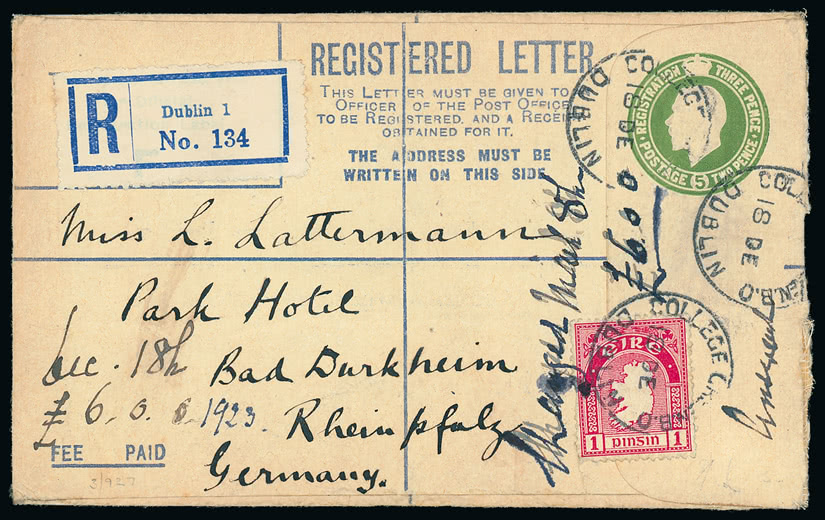 REGISTERED LETTER
THIS LETTER MUST BE GIVEN TO
OFFICER OF THE POST OFFICE
TO BE REGISTERED, AND A RECEI
OBTAINED FOR IT.
THE ADDRESS MUST BE
WRITTEN ON THIS SIDE
R
Dublin 1
No. 134
REGISTRATION THREE PENCE
POSTAGE (5) TWO PENCE
DUBLIN
18 DE
CO
COL
18 DE
DUBLIN
EN.B.O
COLLEGE GR
DE
B.O
Miss L. Lattermann
Park Hotel
Bad Durkheim
Rheinpfalz
Germany.
Dec. 18h
£ 6. 0. 0. 1923.
FEE PAID
3/923
éIRe
1 PINSIN 1